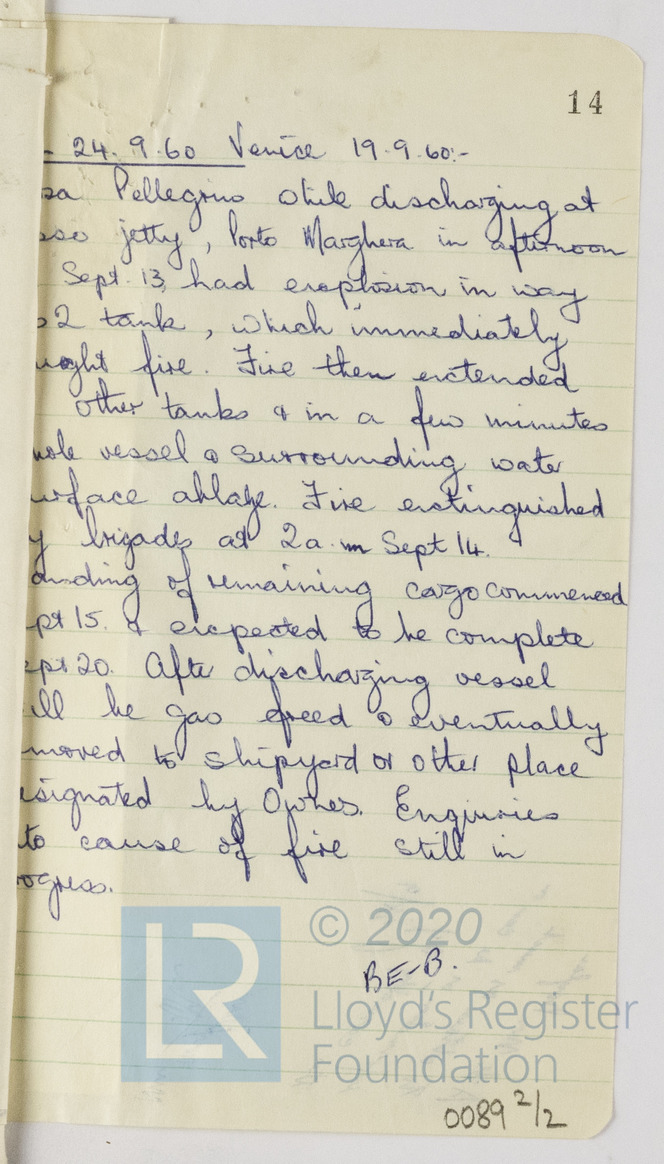 14
- 24.9.60 Venice 19.9.60:-
sa Pellegrino while discharging at
sso jetty, Porto Marghera in afternoon
Sept. 13, had explosion in way
o 2 tank, which immediately
ught fire. Fire then extended
other tanks & in a few minutes
hole vessel & surrounding water
urface ablaze. Fire extinguished
y brigades at 2 a.m Sept 14.
anding of remaining cargo commenced
pt 15. & expected to be complete
ept 20. After discharging vessel
ill be gas freed & eventually
moved to shipyard or other place
esignated by Owners. Enquiries
to cause of fire still in
rogress.
LR © 2020
BE-B.
Lloyd's Register
Foundation
0089 2/2